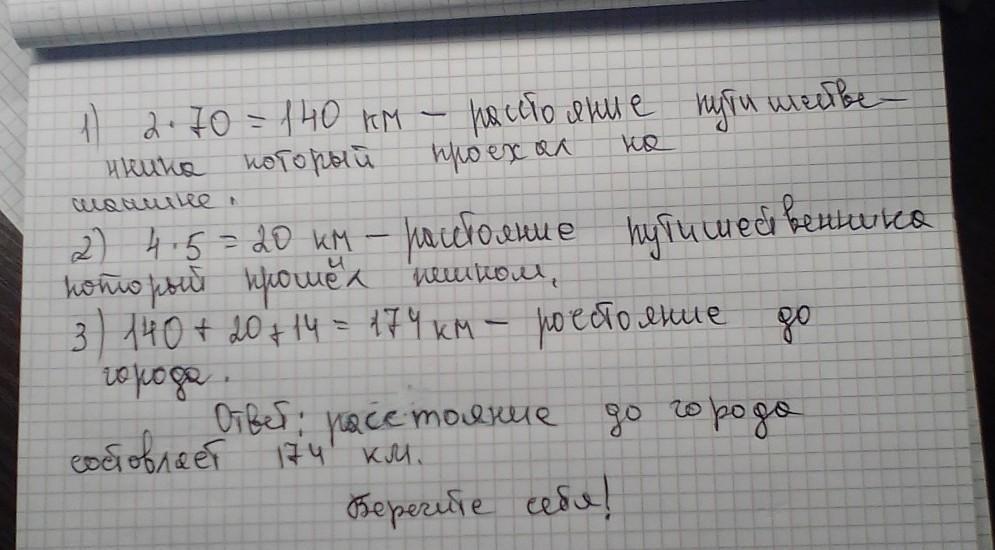 1) 2·70=140 км – расстояние путишестве–
нника который проехал на
машине.
2) 4·5=20 км – расстояние путишественника
который прошёл пешком.
3) 140+20+14=174 км – росстояние до
города.
Ответ: расстояние до города
состовляет 174 км.
Берегите себя!